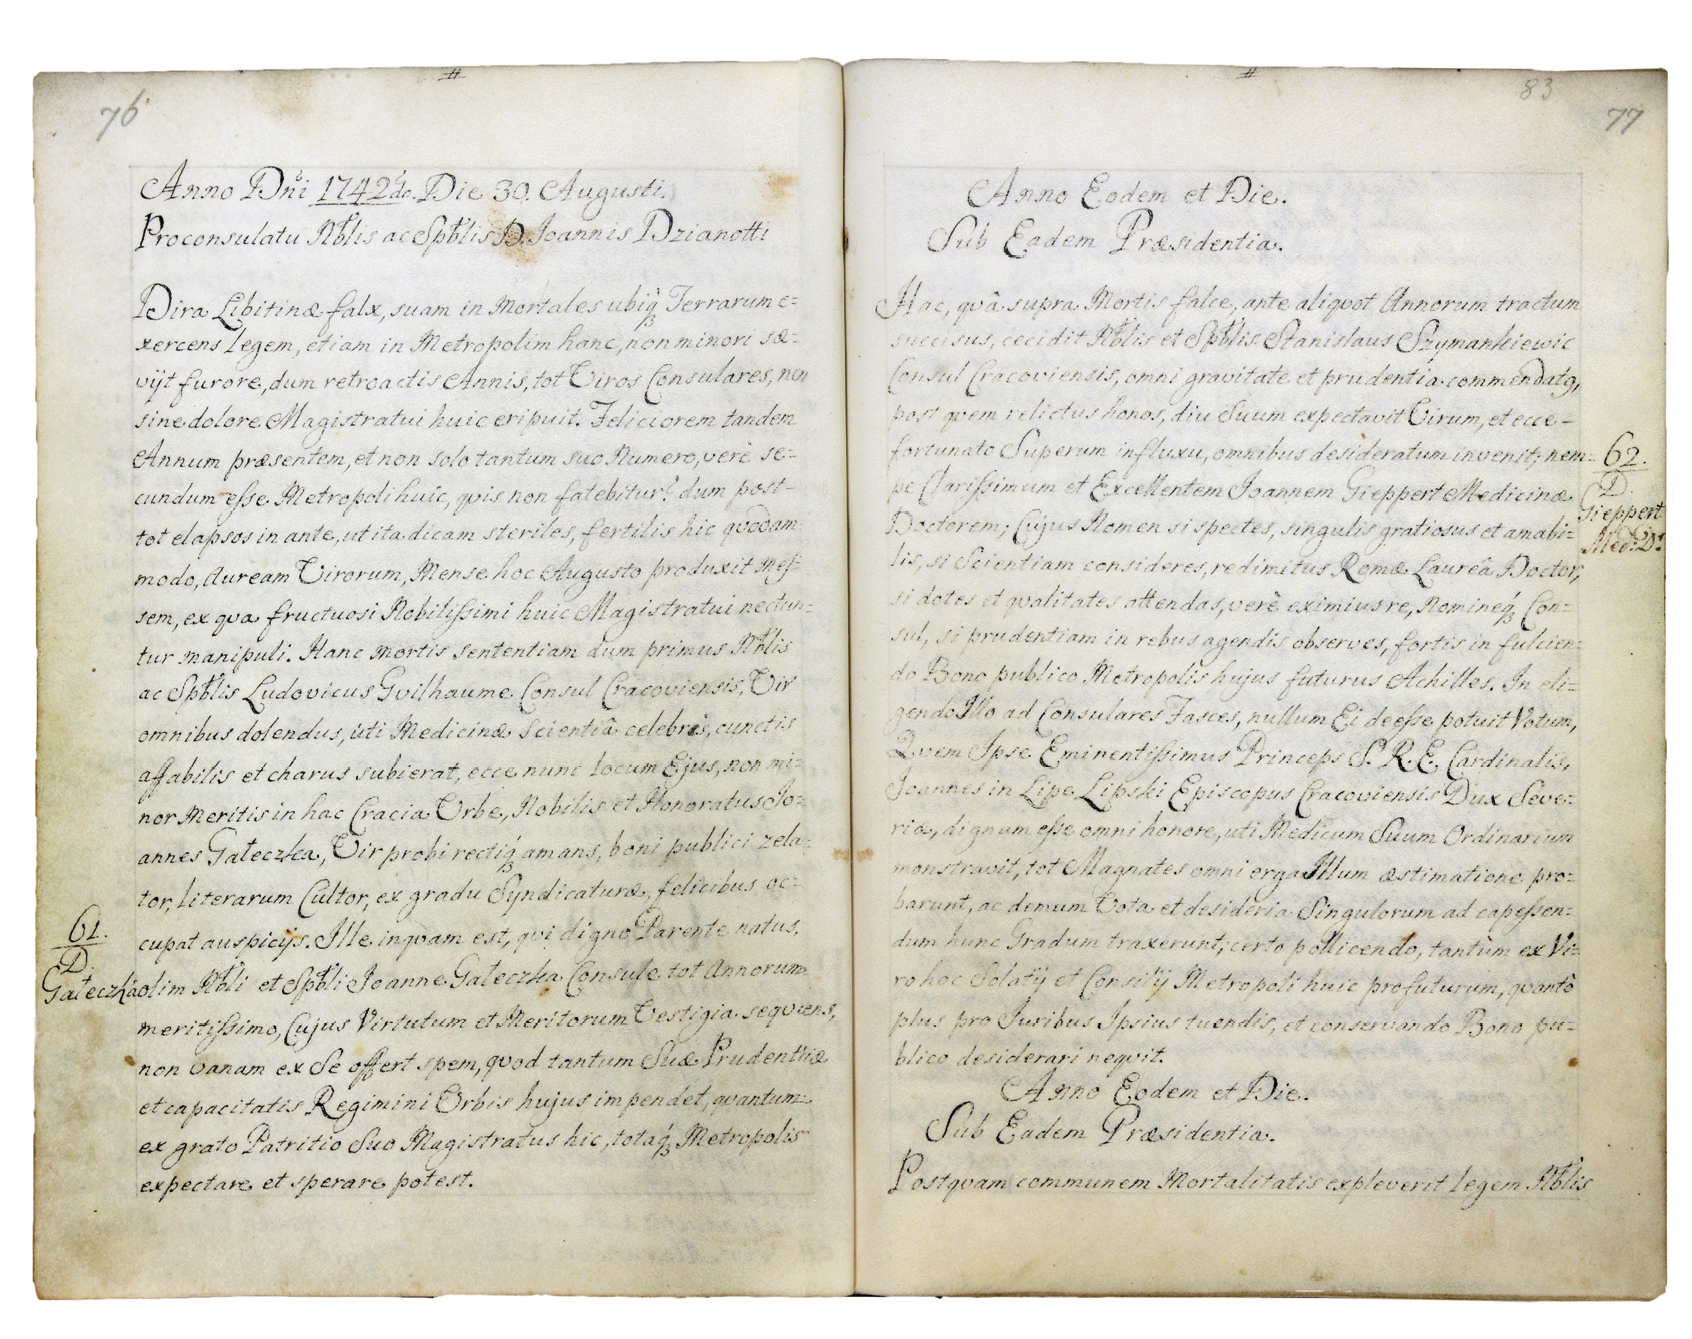 76
Anno Dñi 1742do. Die 30. Augusti.
Proconsulatu Nblis ac Spblis D. Joannis Dzianotti
Dira Libitinæ falx, suam in Mortales ubiq; Terrarum e=
xercens Legem, etiam in Metropolim hanc, non minori sæ=
vijt furore, dum retroactis Annis, tot Viros Consulares, non
sine dolore Magistratui huic eripuit. Feliciorem tandem
Annum præsentem, et non solo tantum suo Numero, verè se=
cundum esse Metropoli huic, quis non fatebitur? dum post-
tot elapsos in ante, ut ita dicam steriles, fertilis hic quodam-
modo, Auream Virorum, Mense hoc Augusto produxit Mes=
sem, ex qva fructuosi Nobilissimi huic Magistratui nectun=
tur manipuli. Hanc Mortis sententiam dum primus Nblis
ac Spblis Ludovicus Gvilhaume Consul Cracoviensis, Vir
omnibus dolendus, uti Medicinæ Scientiâ celebris, cunctis
affabilis et charus subierat, ecce nunc locum Ejus, non mi=
nor Meritis in hac Cracia Urbe, Nobilis et Honoratus Jo=
annes Gałeczka, Vir probi rectiq; amans, boni publici zela=
tor, literarum Cultor, ex gradu Syndicaturæ, felicibus oc=
cupat auspicijs. Ille inqvam est, qvi digno Parente natus,
61.
D.
Gałeczka
olim Nbli et Spbli Joanne Gałeczka Consule tot Annorum
meritissimo, Cujus Virtutum et Meritorum Vestigia seqvens,
non vanam ex Se offert spem, qvod tantum Suæ Prudentiæ
et capacitatis Regimini Orbis hujus impendet, qvantum
ex grato Patritio Suo Magistratus hic, totaq; Metropolis
expectare et sperare potest.
83
77
Anno Eodem et Die.
Sub Eadem Præsidentia.
Hac, qvâ supra Mortis falce, ante aliqvot Annorum tractum
succisus, cecidit Nblis et Spblis Stanislaus Szymankiewic
Consul Cracoviensis, omni gravitate et prudentia commendatq,
post qvem relictus honos, diu Suum expectavit Virum, et ecce -
fortunato Superum influxu, omnibus desideratum invenit; nem=
62.
D.
Gieppert
Med: Dr
pe Clarissimum et Excellentem Joannem Gieppert Medicinæ
Doctorem; Cujus Nomen si spectes, singulis gratiosus et amabi=
lis, si Scientiam consideres, redimitus Romæ Laureâ Doctor,
si dotes et qvalitates attendas, verè eximius re, Nomineq; Con=
sul, si prudentiam in rebus agendis observes, fortis in fulcien=
do Bono publico Metropolis hujus futurus Achilles. In eli=
gendo Illo ad Consulares Fasces, nullum Ei deesse potuit Votum,
Qvem Ipse Eminentissimus Princeps S. R. E. Cardinalis,
Joannes in Lipe Lipski Episcopus Cracoviensis Dux Seve=
riæ, dignum esse omni honore, uti Medicum Suum Ordinarium
monstravit, tot Magnates omni erga Illum æstimatione pro=
barunt, ac demum Vota et desideria Singulorum ad capessen=
dum hunc Gradum traxerunt; certo pollicendo, tantùm ex Vi=
ro hoc Solatij et Consilij Metropoli huic profuturum, qvantò
plus pro Juribus Ipsius tuendis, et conservando Bono pu=
blico desiderari neqvit.
Anno Eodem et Die.
Sub Eadem Præsidentia.
Postqvam communem Mortalitatis expleverit legem Nblis